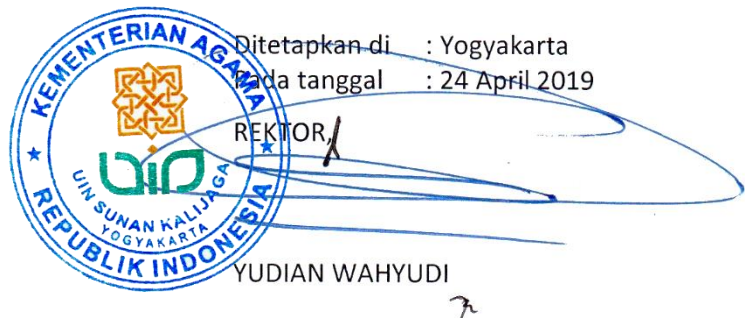 KEMENTERIAN AGAMA
REPUBLIK INDONESIA
uin
UIN SUNAN KALIJAGA
YOGYAKARTA
Ditetapkan di : Yogyakarta
Pada tanggal : 24 April 2019
REKTOR,
YUDIAN WAHYUDI